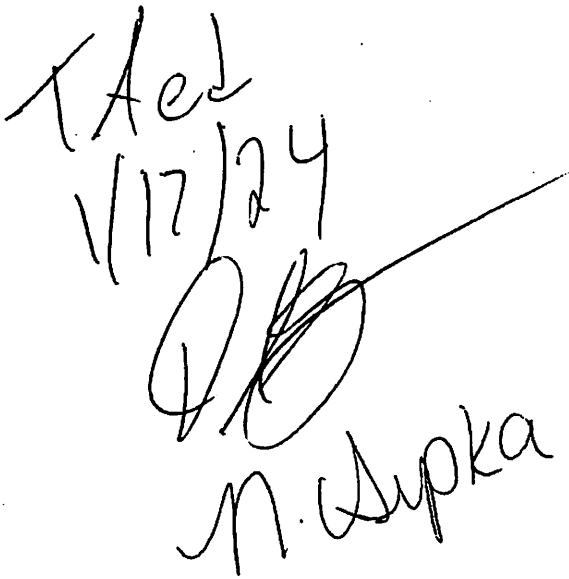 TAed
1/17/24
N. Supka